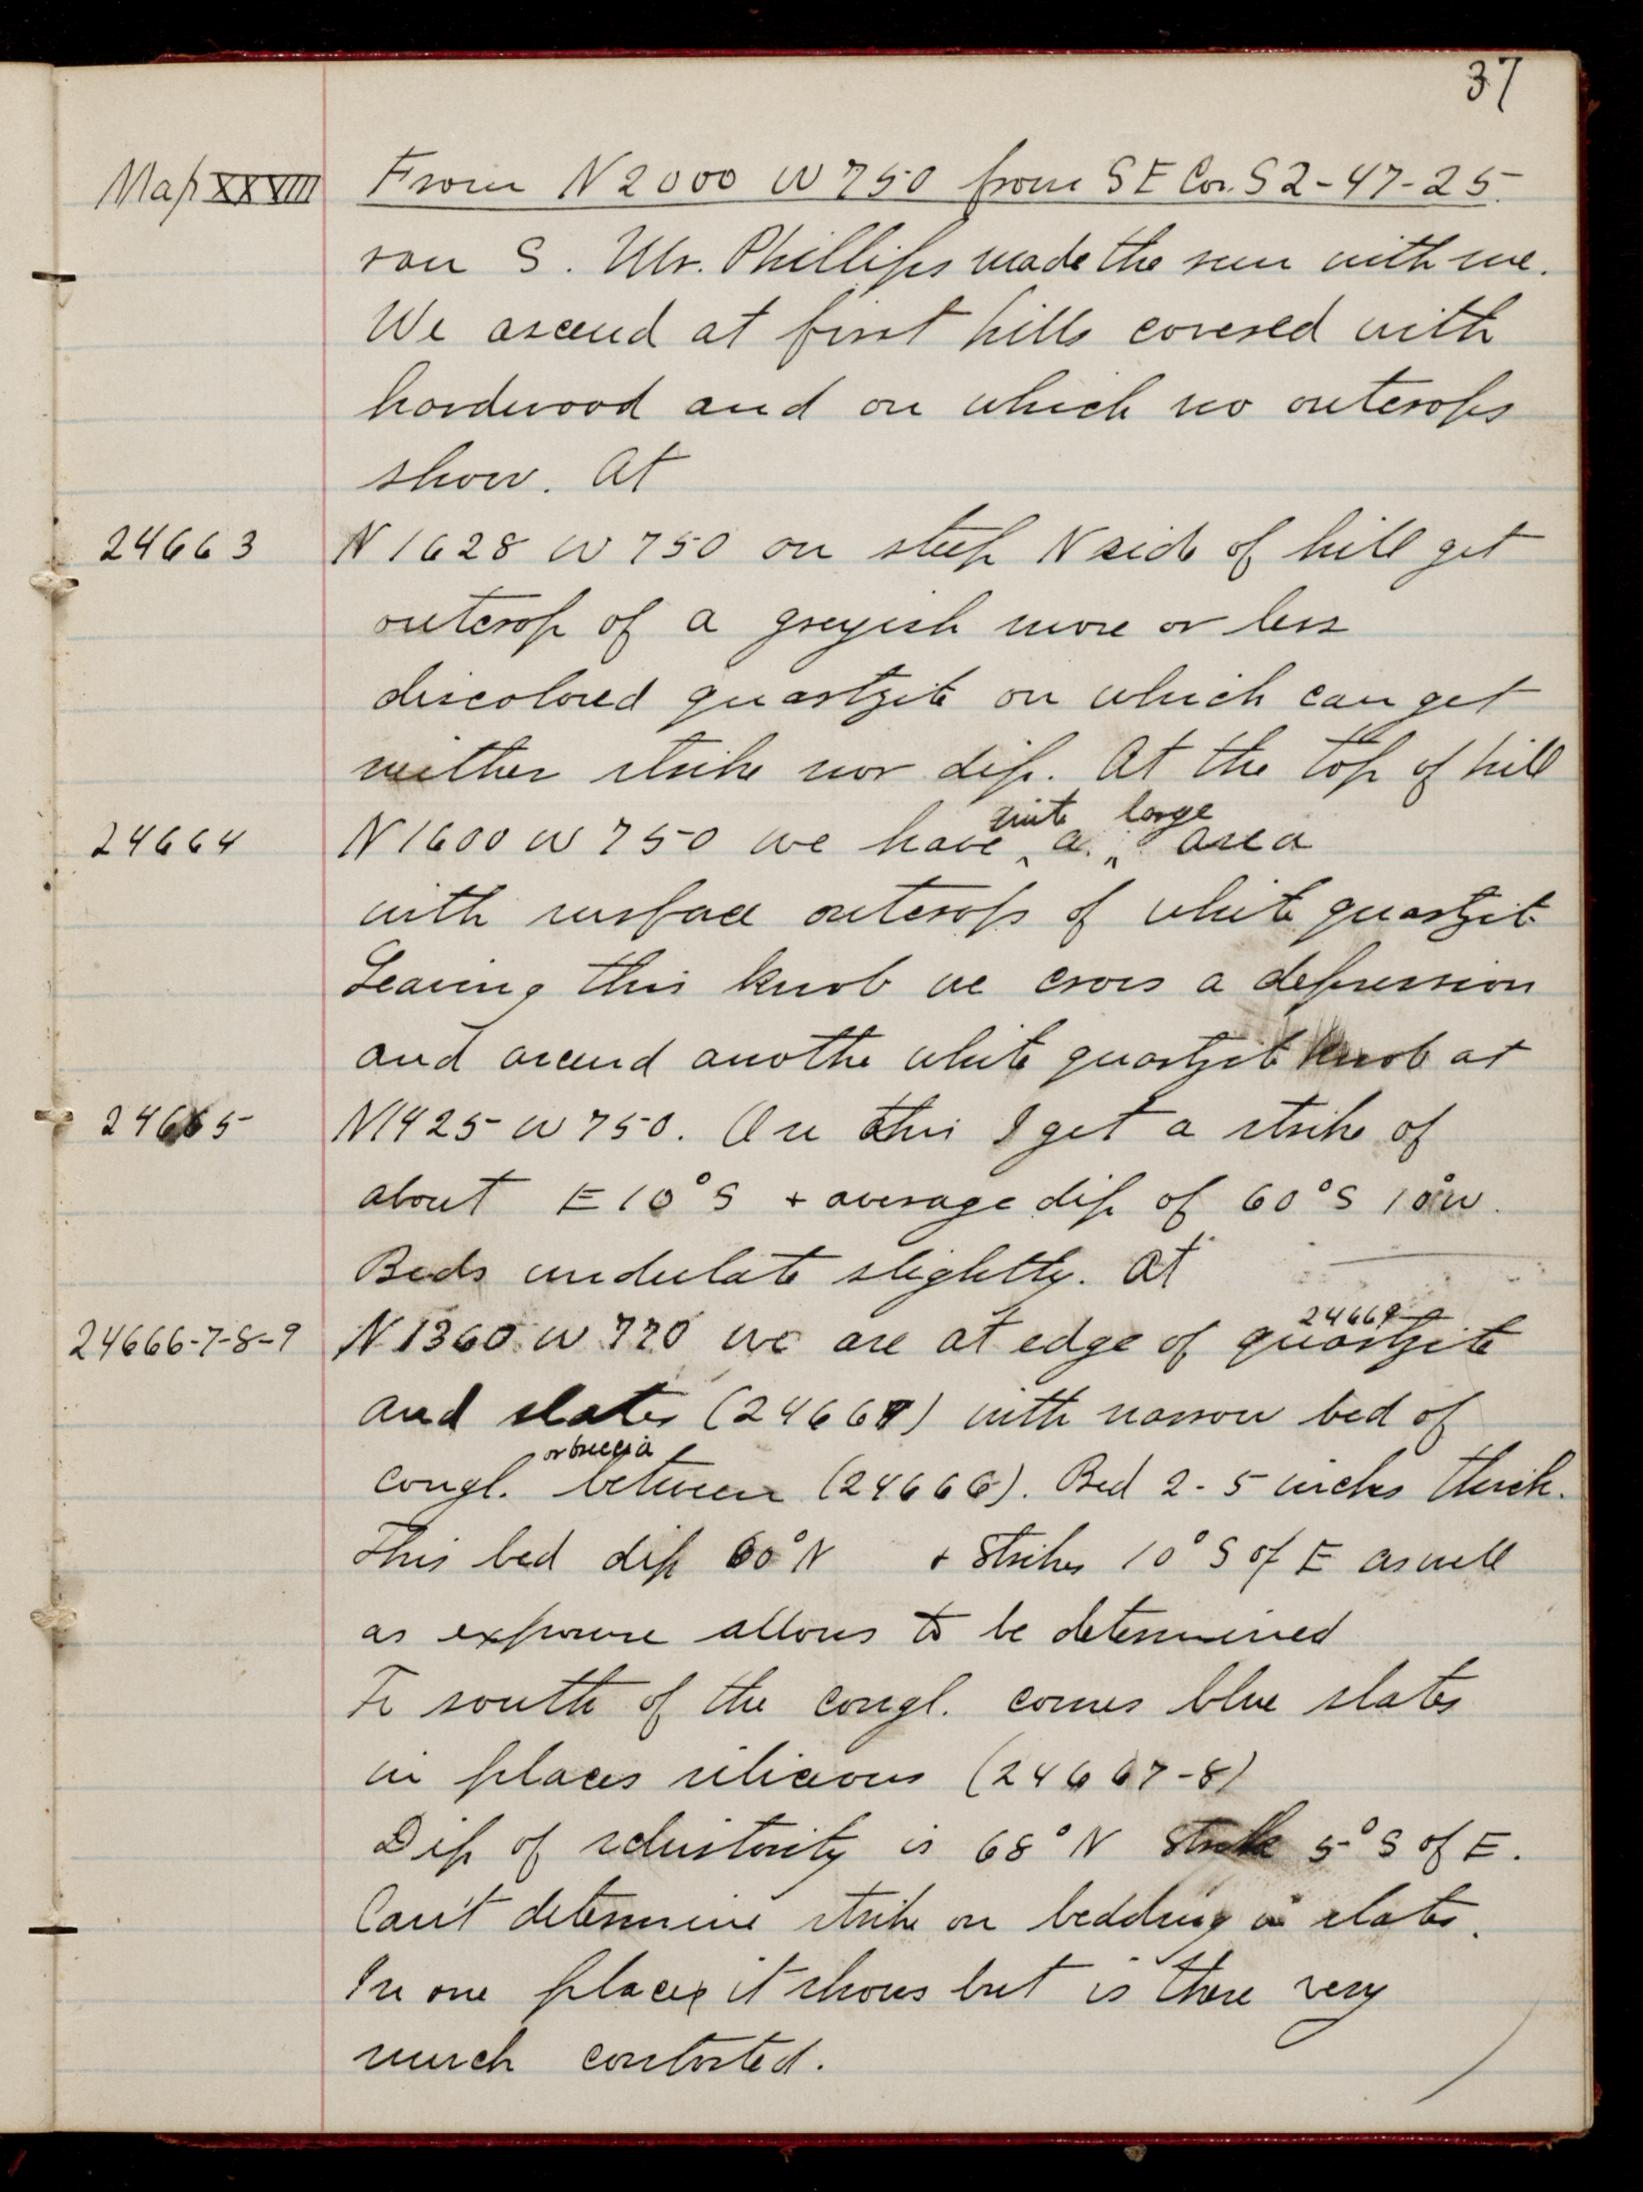 37
Map XXXVIII From N 2000 W 750 from S E Cor. S 2-47-25.
ran S. Mr. Phillips made the run with me.
We ascend at first hills covered with
hardwood and on which no outcrops
show. At
24663 N 1628 W 750 on steep N side of hill get
outcrop of a greyish more or less
discolored quartzite on which can get
neither strike nor dip. At the top of hill
quite large
24664 N 1600 W 750 we have ‸ a ‸ area
with surface outcrops of white quartzite
Leaving this knob we cross a depression
and ascend anothe white quartzite knob at
24665 N 1425 W 750. On this I get a strike of
about E 10° S + average dip of 60° S 10° W.
Beds undulate slightly. At
24669
24666-7-8-9 N 1360 W 770 we are at edge of quartzite
and slates (24667) with narrow bed of
or breccia
congl. between (24666). Bed 2-5 inches thick.
This bed dips 60° N + strikes 10° S of E as well
as exposure allows to be determined
To south of the congl. comes blue slates
in places silicious (24667-8)
Dip of schistosity is 68° N strike 5° S of E.
Can't determine strike on bedding in slates.
In one place it shows but is there very
much contorted.